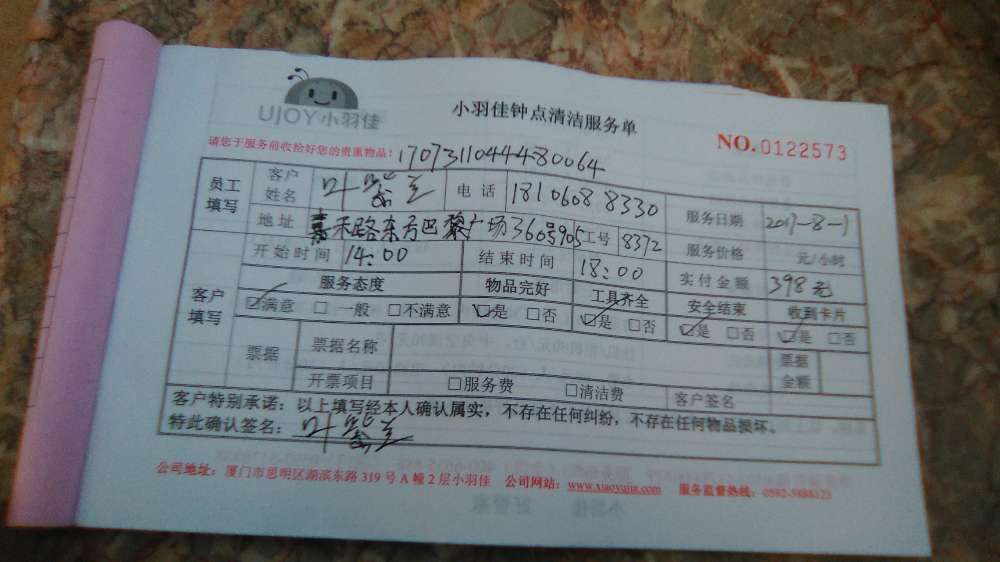 UJOY小羽佳
小羽佳钟点清洁服务单
NO.0122573
请您于服务前收拾好您的贵重物品: 1707311044480064
员工填写 客户姓名 叶紫兰 电话 18106088330 服务日期 2017-8-1
地址 嘉禾路东方巴黎广场360号905 工号 8372 服务价格 元/小时
客户填写 开始时间 14:00 结束时间 18:00 实付金额 398元
服务态度 物品完好 工具齐全 安全结束 收到卡片
☑满意 □一般 □不满意 ☑是 □否 ☑是 □否 ☑是 □否 ☑是 □否
票据 票据名称 票据金额
开票项目 □服务费 □清洁费 客户签名
客户特别承诺:以上填写经本人确认属实,不存在任何纠纷,不存在任何物品损坏。
特此确认签名: 叶紫兰
公司地址:厦门市思明区湖滨东路319号A幢2层小羽佳 公司网站:www.xiaoyujia.com 服务监督热线:0592-5888123